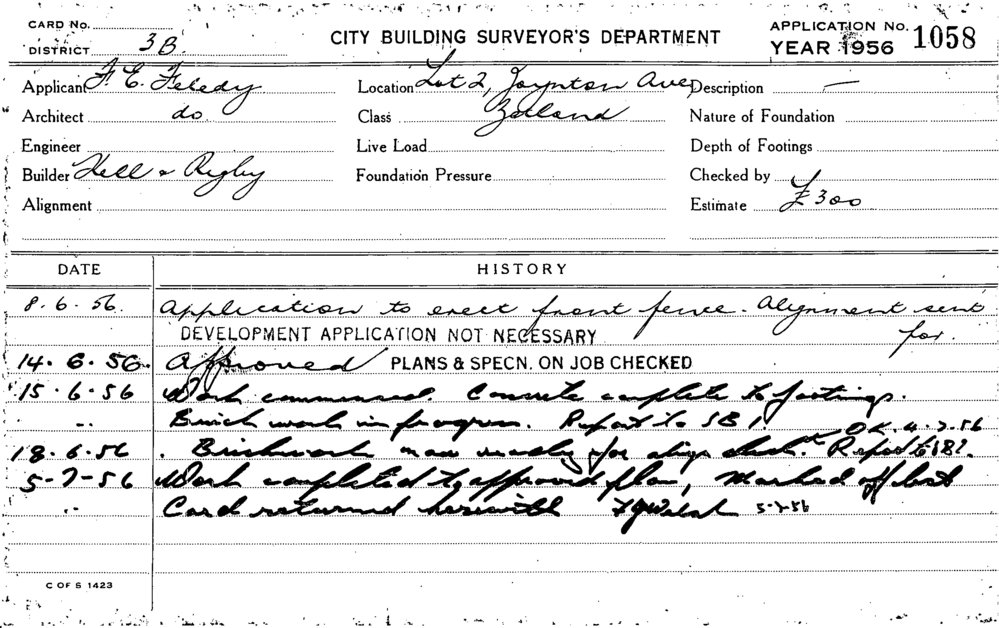 CARD No.
DISTRICT 3B
CITY BUILDING SURVEYOR'S DEPARTMENT
APPLICATION No. 1058
YEAR 1956
Applicant F. E. Feledy
Location Lot 2, Joynton Ave,
Description —
Architect do.
Class Zetland
Nature of Foundation
Engineer
Live Load
Depth of Footings
Builder Kell & Rigby
Foundation Pressure
Checked by
Alignment
Estimate £300
DATE HISTORY
8.6.56. Application to erect front fence. Alignment sent
for.
DEVELOPMENT APPLICATION NOT NECESSARY
14.6.56. Approved PLANS & SPECN. ON JOB CHECKED
15.6.56 Work commenced. Concrete complete to footings.
" Brick work in progress. Report to SB1.
OK. 4.7.56
18.6.56 . Brickwork now ready for align check. Report to
5-7-56 Work completed to approved plan, Marked off
" Card returned herewith FJ Walsh 5-7-56
C OF S 1423